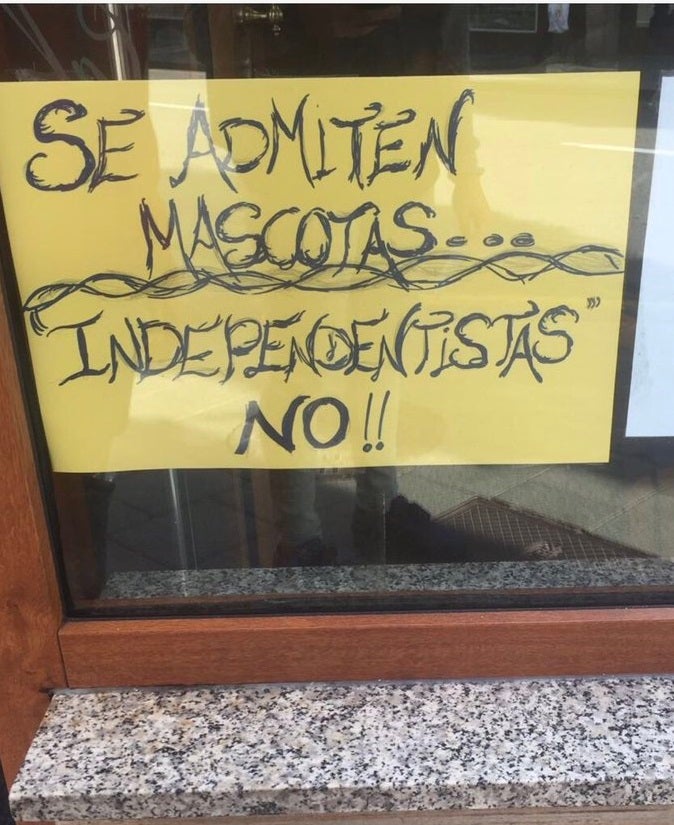 SE ADMITEN
MASCOTAS...
"INDEPENDENTISTAS"
NO!!